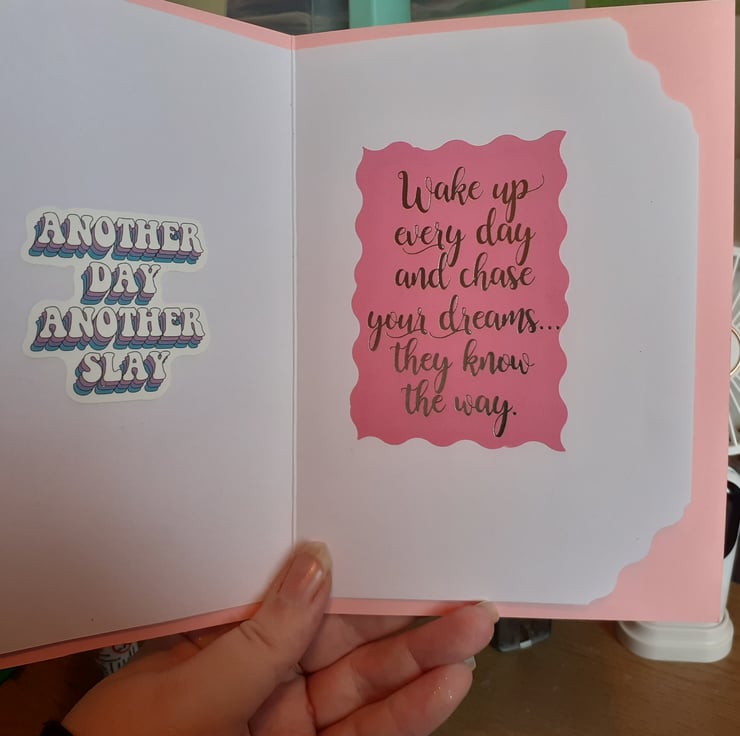 ANOTHER
DAY
ANOTHER
SLAY
Wake up
every day
and chase
your dreams...
they know
the way.